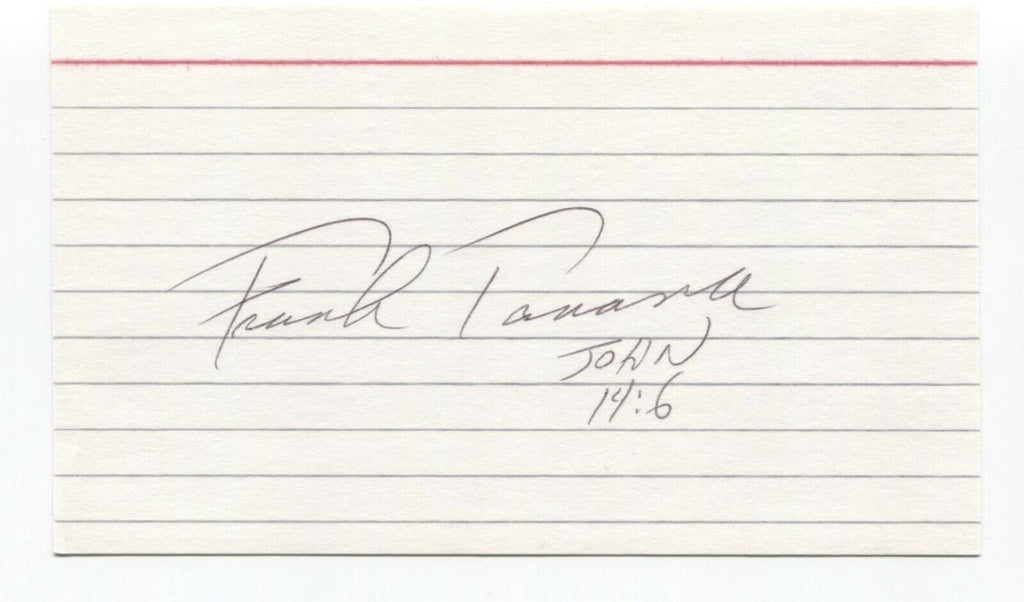 Frank Tanana
JOHN
14:6